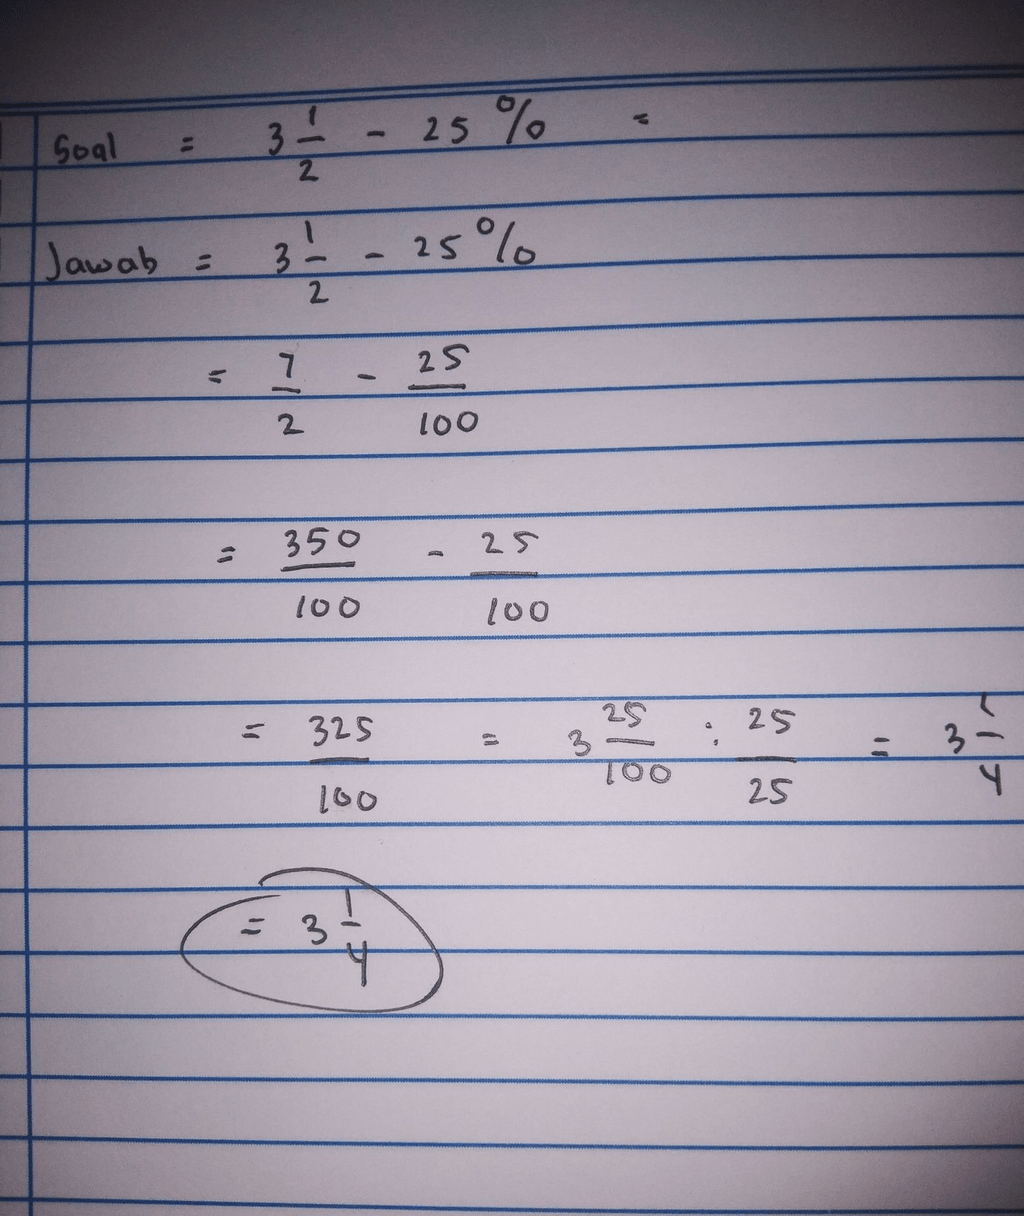 Soal = 3 1/2 - 25 % =
Jawab = 3 1/2 - 25 %
= 7/2 - 25/100
= 350/100 - 25/100
= 325/100 = 3 25/100 : 25/25 = 3 1/4
= 3 1/4